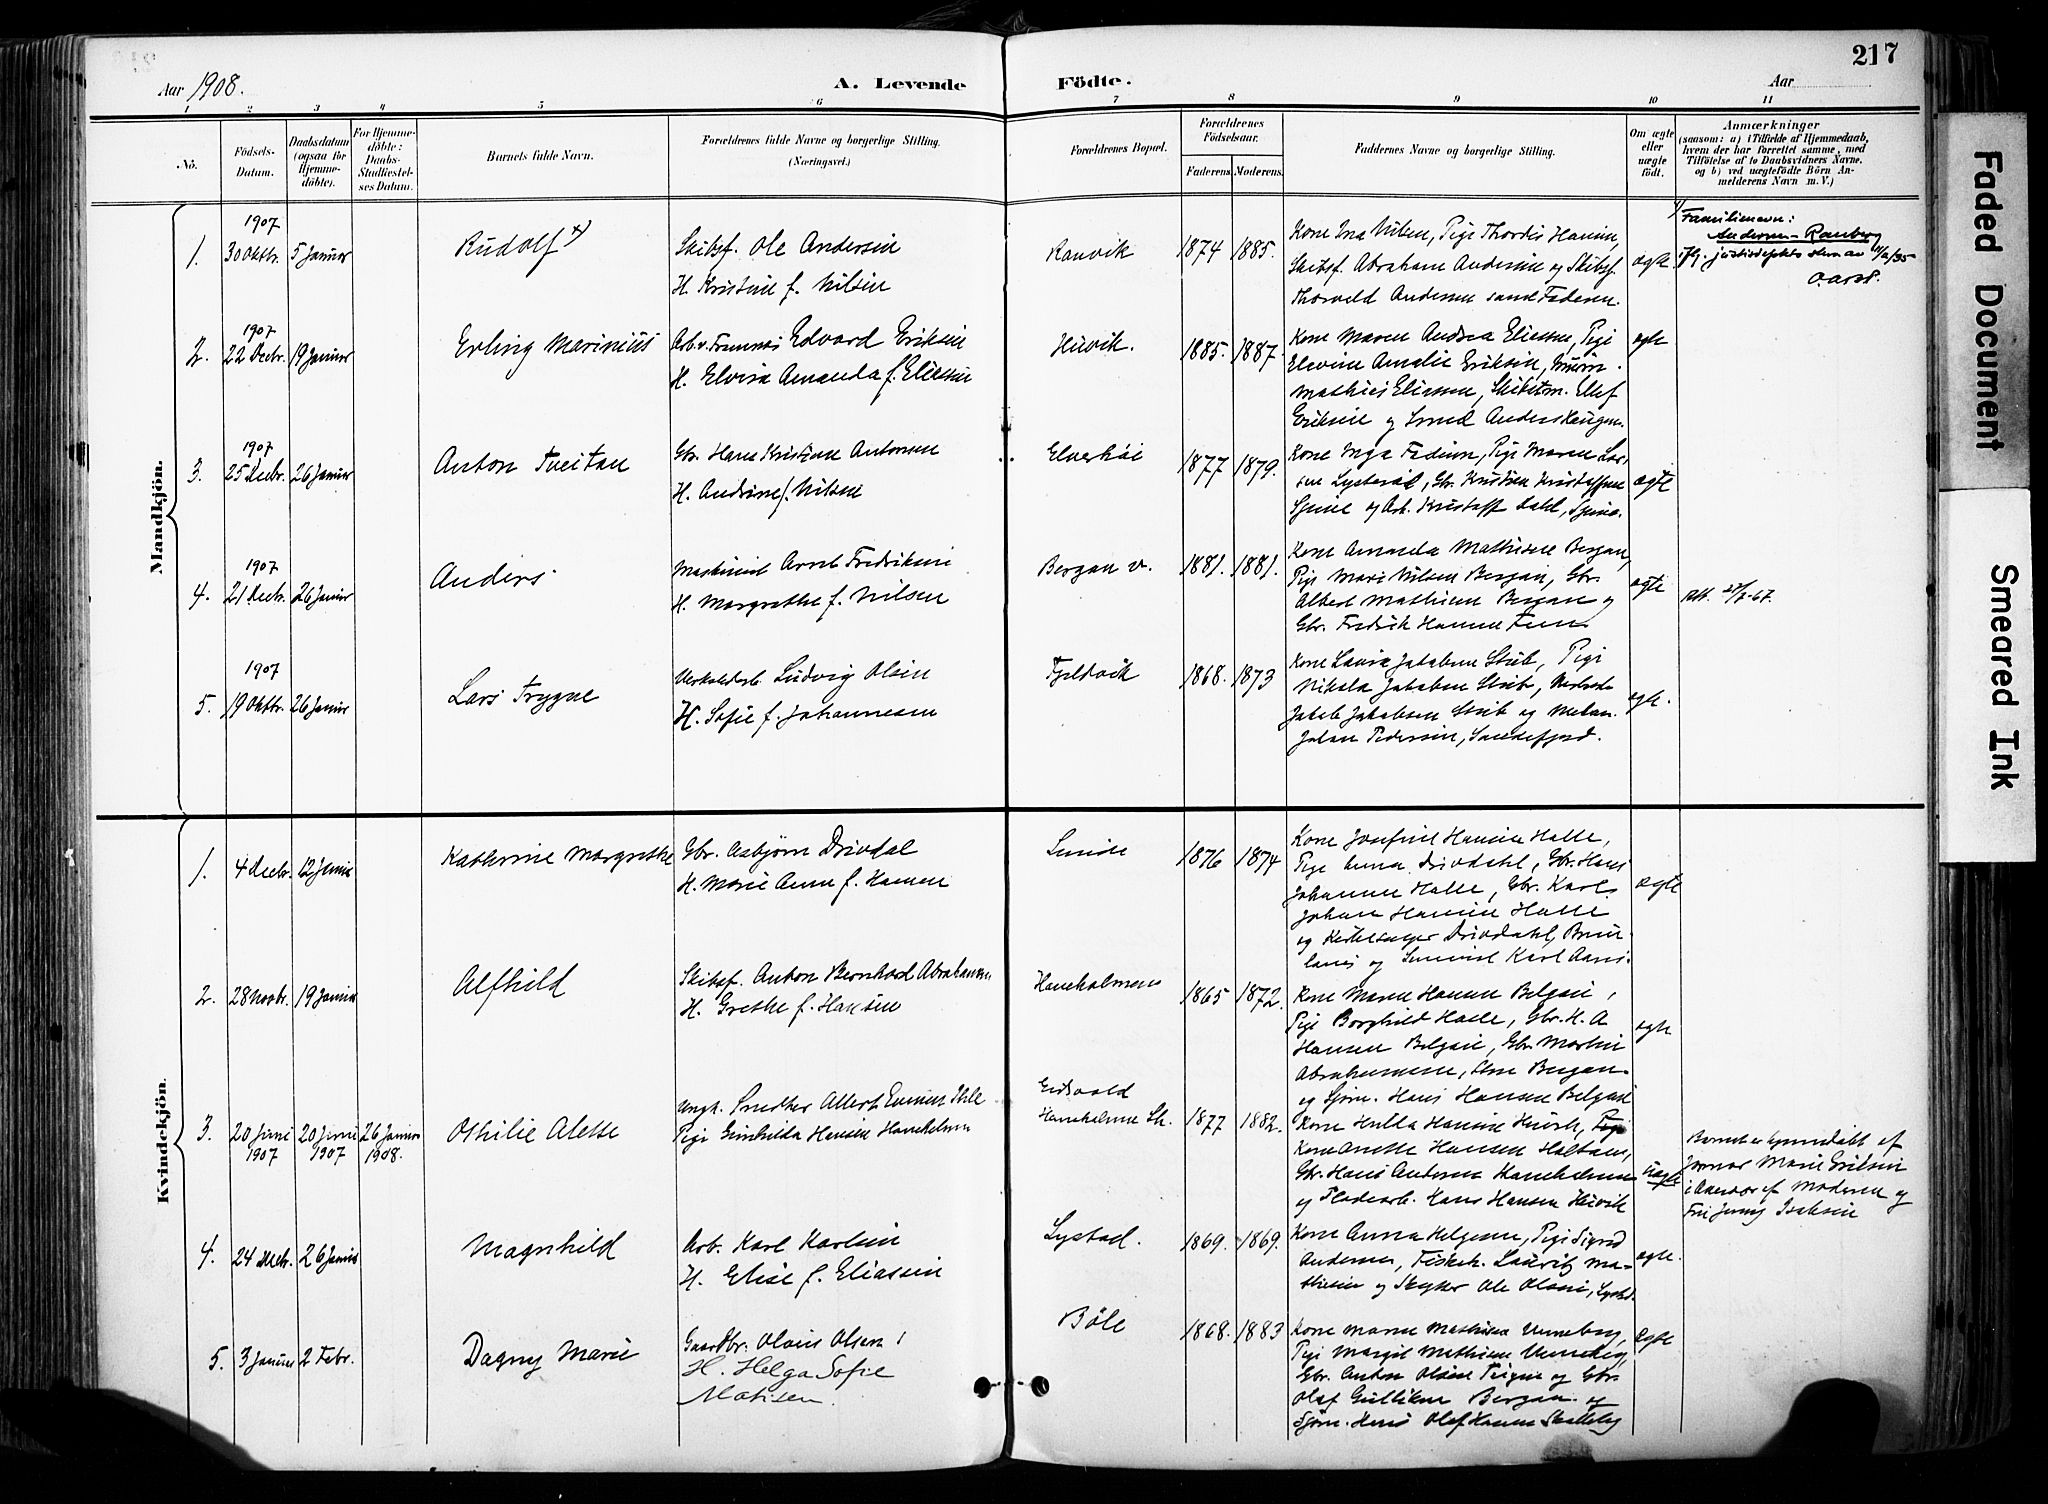 217
Aar 1908.
A. Levende Födte.
Aar
1 2 3 4 5 6 7 8 9 10 11
No.
Födsels-Datum.
Daabsdatum (ogsaa for Hjemme-döbte).
For Hjemme-döbte: Daabs-Stadfæstel-ses Datum.
Barnets fulde Navn.
Forældrenes fulde Navne og borgerlige Stilling. (Næringsvei.)
Forældrenes Bopæl.
Forældrenes Födselsaar.
Faderens. Moderens.
Faddernes Navne og borgerlige Stilling.
Om ægte eller uægte födt.
Anmærkninger
(saasom: a) i Tilfælde af Hjemmedaab, hvem der har forrettet samme, med Tilföielse af to Daabsvidners Navne. og b) ved uægtefödte Börn An-melderens Navn m. V.)
Mandkjön.
1. 1907 30 Oktbr. 5 Januar
Rudolf x)
Skibsf. Ole Andersen
H. Kristine f. Nilsen
Ranvik 1874 1885.
Kone Ina Nilsen, Pige Thordis Hansen,
Skibsf. Abraham Andersen og Skibsf.
Thorvald Andersen samt Faderen.
ægte
Familienavn:
Andersen-Ranberg
2. 1907 22 Decbr. 19 Januar
Erling Marinius
Edvard Eriksen
H. Elvira Amanda f. Eliassen
Huvik. 1885. 1887.
Kone Maren Andrea Eliassen, Pige
Elevine Amalie Eriksen,
Mathias Eliassen, Skibstm. Ellef
Eriksen og Smed Anders Haugen.
ægte
3. 1907 25 Decbr. 26 Januar
Anton Tveitan
Gbr. Hans Kristian Antonsen
H. Andrine f. Nilsen
Elverhöi 1877 1879.
Kone Inga Fadum, Pige Maren Lar-
sen Lysterød, Gbr. Kristian Kristoffersen
og Arb. Kristoff Dahl,
ægte
4. 1907 21 Decbr. 26 Januar
Anders
Maskinist Arnt Fredriksen
H. Margrethe f. Nilsen
Bergan v. 1881. 1881.
Kone Amanda Mathisen Bergan,
Pige Marie Nilsen Bergan, Gbr.
Albert Mathisen Bergan og
Gbr. Fredrik Hansen
ægte
Att. -67.
5. 1907 19 Oktbr. 26 Januar
Lars Trygve
Ludvig Olsen
H. Sofie f. Johannesen
Fjeldvik 1868. 1873
Kone Lovise Jakobsen Strib, Pige
Nikola Jakobsen Strib,
Jakob Jakobsen Strib og
Johan Pedersen, Sandefjord.
ægte.
Kvindekjön.
1. 4 Decbr. 12 Januar
Kathrine Margrethe
Gbr. Asbjörn Drivdal
H. Marie Anna f. Hansen
Sunde 1876 1874
Kone Josefine Hansen Halle,
Pige Anna Drivdahl, Gbr. Hans
Johannes Halle, Gbr. Karl
Johan Hansen Halle
og Drivdahl, Brun-
lanes og Karl Aanes.
ægte
2. 28 Novbr. 19 Januar
Alfhild
Skibsf. Anton Bernhard Abrahamsen
H. Grethe f. Hansen
Haneholmen 1865 1872.
Kone Maren Hansen Belgau,
Pige Borghild Halle, Gbr. H. A
Hansen Belgau, Gbr. Martin
Abrahamsen, Bergan
og Sjöm. Hans Hansen Belgau
ægte
3. 20 Juni 1907 20 Juni 1907 26 Januar 1908.
Othilie Alette
Ungk. Snedker Albert
Pige Gunhilda Hansen Haneholmen
Eidsvold
Haneholmen 1877 1882.
Kone Hulda Hansen Huvik,
Kone Anette Hansen Holtan,
Gbr. Hans Andersen Haneholmen
og Pladearb. Hans Hansen Huvik
uægte
Barnet er hjemmedöbt af
Jormor Marie Eriksen
i Overvær af Moderen og
Jenny Isaksen
4. 24 Decbr. 26 Januar
Magnhild
Arb. Karl Karlsen
H. Elise f. Eliassen
Lystad. 1869. 1869.
Kone Anna Helgesen, Pige Sigrid
Andersen, Fiskeh. Lauritz Ma-
thisen og Skytter Ole Olsen, Lystad.
ægte.
5. 3 Januar 2 Febr.
Dagny Marie
Gaardbr. Olaus Olsen,
H. Helga Sofie
Matisen.
Böle 1868. 1883
Kone Maren Mathisen Unneberg,
Pige Margit Mathisen Unneberg,
Gbr. Anton Olsen og Gbr.
Olaf Gulliksen Bergan og
Sjöm. Hans Olaf Hansen Skalleberg
ægte
Faded Document
Smeared Ink